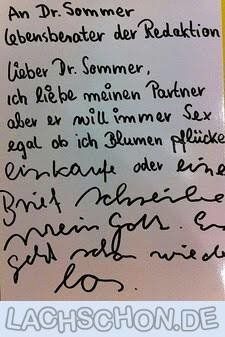 An Dr. Sommer
Lebensberater der Redaktion
Lieber Dr. Sommer,
ich liebe meinen Partner
aber er will immer Sex
egal ob ich Blumen pflücke
einkaufe oder eine
Brief schreibe
mein Gott. Es
geht schon wieder
los.
LACHSCHON.DE